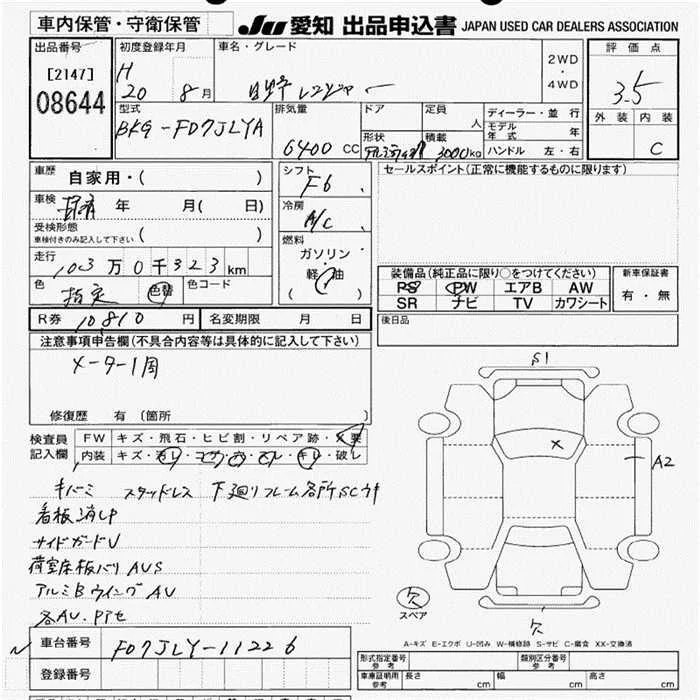 車内保管・守衛保管
JU 愛知 出品申込書 JAPAN USED CAR DEALERS ASSOCIATION
出品番号
[2147]
08644
初度登録年月
H 20 8 月
車名・グレード
日野 レンジャー
2WD
・
4WD
評価点
3.5
外装 内装
C
型式
BKG-FD7JLYA
排気量
6400 CC
ドア
形状
定員
人
積載
3000 kg
ディーラー・並行
モデル年式 年
ハンドル 左・右
車歴 自家用・( )
車検 年 月( 日)
受検形態
車検付きのみ記入して下さい ( )
走行
103 万 0 千 323 km
色 指定 色替
色コード
シフト
F6
冷房
A/C
燃料
ガソリン・
軽・油
( )
セールスポイント(正常に機能するものに限ります)
装備品(純正品に限り○をつけてください)
PS PW エアB AW
SR ナビ TV カワシート
新車保証書
有・無
後日品
R券 10810 円
名変期限 月 日
注意事項申告欄(不具合内容等は具体的に記入して下さい)
メーター1周
修復歴 有 (箇所 )
検査員記入欄
FW キズ・飛石・ヒビ割・リペア跡・X要
内装 キズ・汚レ・コゲ・穴・スレ・キレ・破レ
キバミ スタッドレス 下廻りフレーム各所SCサ
看板消しP
サイドガードU
荷室床板バリ AUS
アルミBウイング AU
各AU.Pアセ
車台番号 FD7JLY-11226
登録番号
S1
X
A2
欠
スペア
欠
A-キズ E-エクボ U-凹み W-補修跡 S-サビ C-腐食 XX-交換済
形式指定番号 参考
類別区分番号 参考
車庫証明用 参考 長さ cm 幅 cm 高さ cm